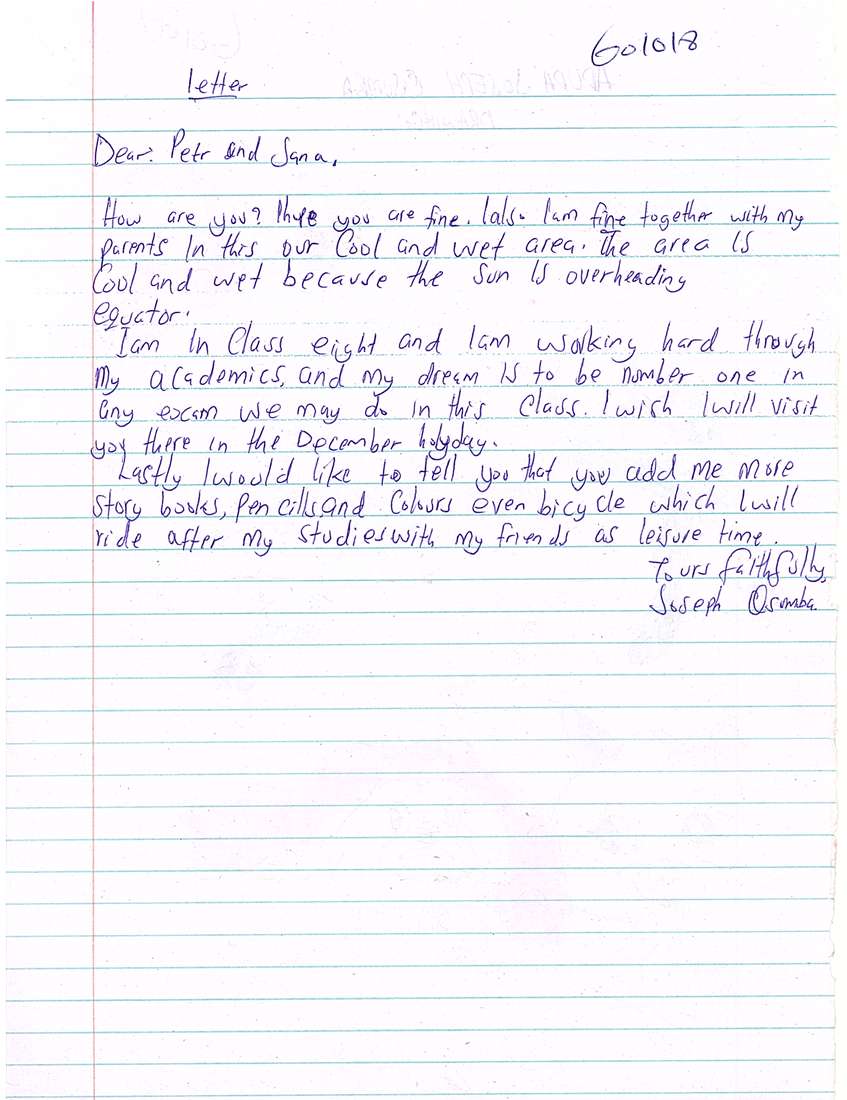 601018
letter
Dear: Petr and Jana,
How are you? Ihope you are fine. Ialso Iam fine together with my
parents In this our Cool and wet area. The area Is
Cool and wet because the sun Is overheading
equator.
Iam In Class eight and Iam working hard through
My academics, and my dream Is to be number one in
any excam we may do in this Class. I wish Iwill visit
you there in the December holyday.
Lastly Iwould like to tell you that you add me more
Story books, Pencills and Colours even bicycle which Iwill
ride after my studies with my friends as leisure time.
Yours faithfully,
Joseph Osumba.